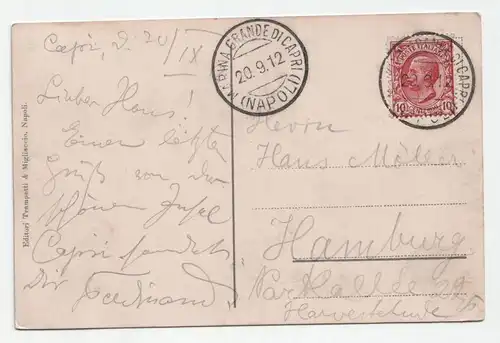 Capri, d. 20/IX
Lieber Hans!
Einen letzten
Gruß von der
schönen Insel
Capri sendet
Dir Ferdinand
Editori Trampetti & Migliaccio, Napoli.
MARINA GRANDE DI CAPRI
20.9.12
(NAPOLI)
POSTE ITALIANE
10 10
DI CAPRI
Herrn
Hans Möller
Hamburg
Parkallee
Harvestehude